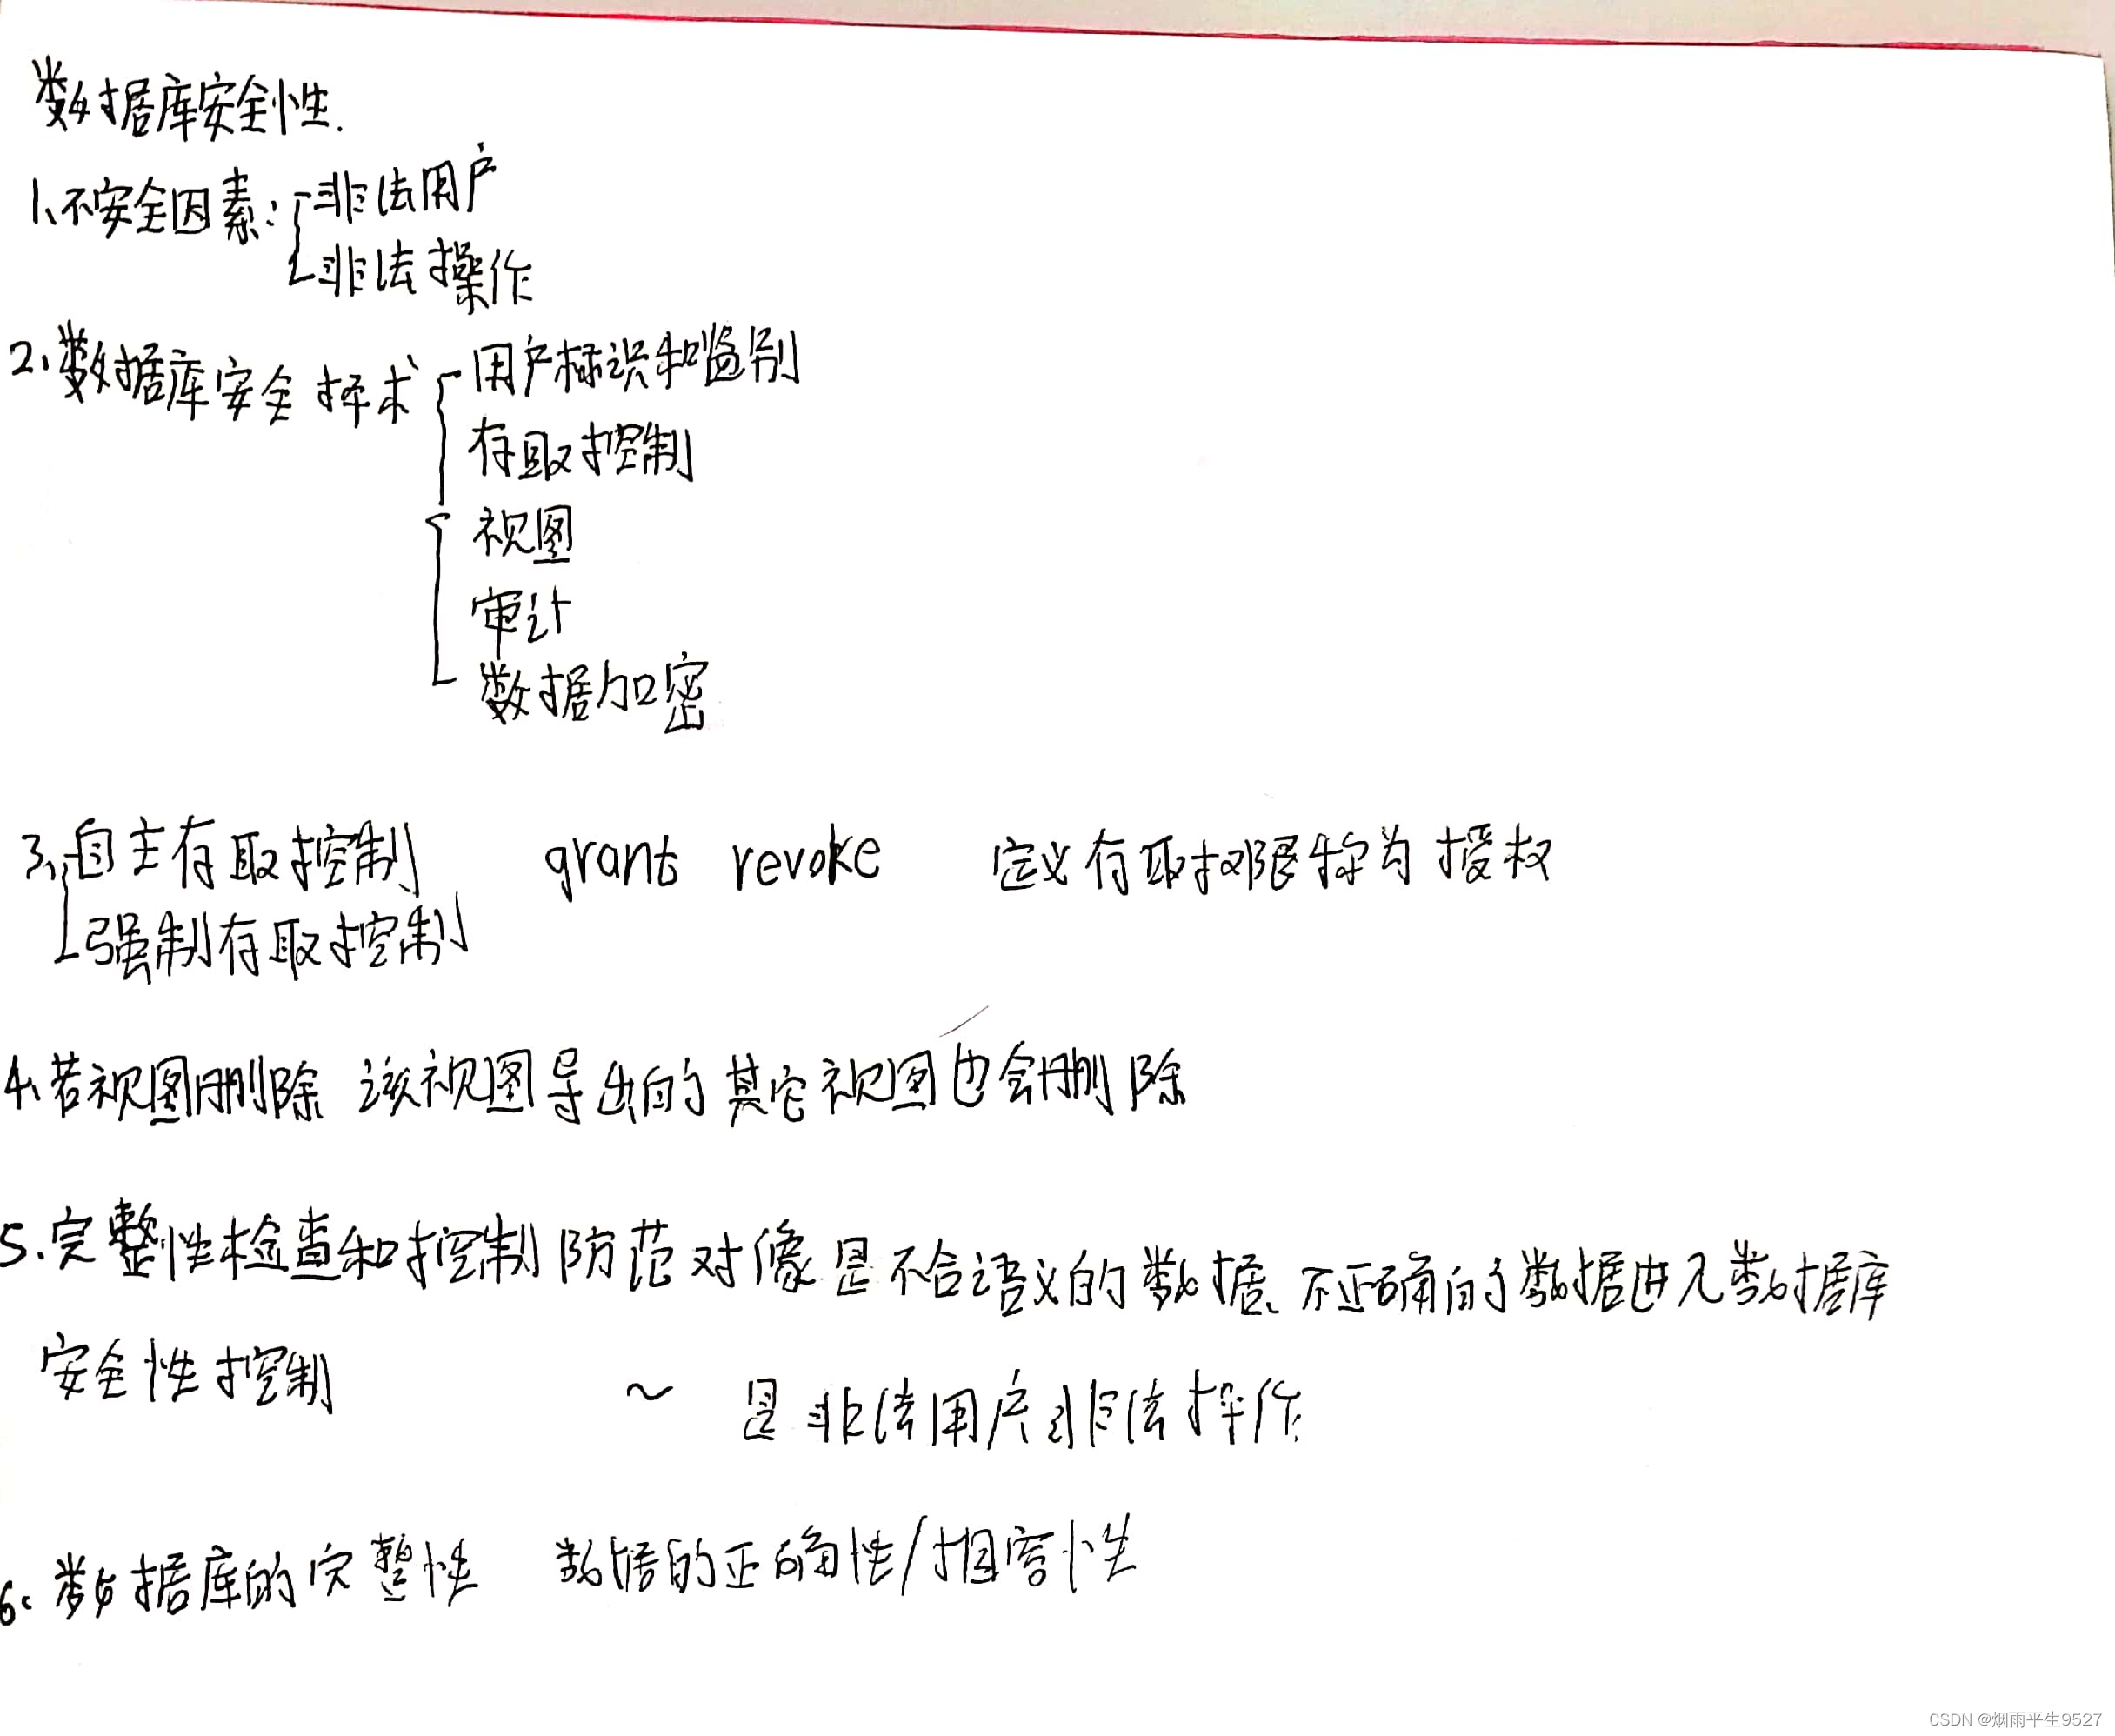 数据库安全性.
1、不安全因素: 非法用户
非法操作
2、数据库安全技术 用户标识和鉴别
存取控制
视图
审计
数据加密
3、自主存取控制 grant revoke 定义存取权限称为授权
强制存取控制
4、若视图删除 该视图导出的其它视图也会删除
5.完整性检查和控制 防范对像是不合语义的数据、不正确的数据进入数据库
安全性控制 ~ 是非法用户非法操作
6、数据库的完整性 数据的正确性/相容性
CSDN @烟雨平生9527